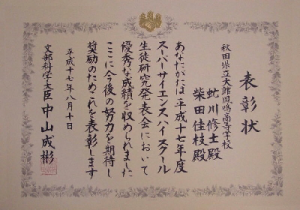 表彰状
秋田県立大館鳳鳴高等学校
虻川修士殿
柴田佳枝殿
あなたがたは平成十七年度
スーパーサイエンスハイスクール
生徒研究発表会において
優秀な成績を収められました
ここに今後の努力を期待し
奨励のためこれを表彰します
平成十七年八月十日
文部科学大臣 中山成彬